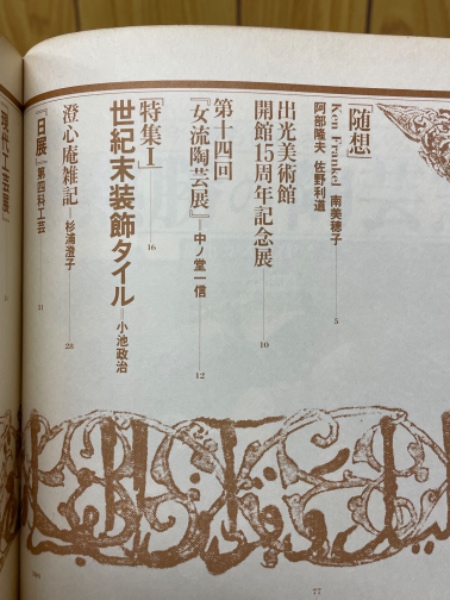 「随想」
Ken Frankel 南美穂子
阿部隆夫 佐野利道
5
出光美術館
開館15周年記念展
10
第十四回
『女流陶芸展』=中ノ堂一信
12
「特集I」
16
世紀末装飾タイル=小池政治
澄心庵雑記=杉浦澄子
28
『日展』第四科工芸
31
「現代工芸展」
77